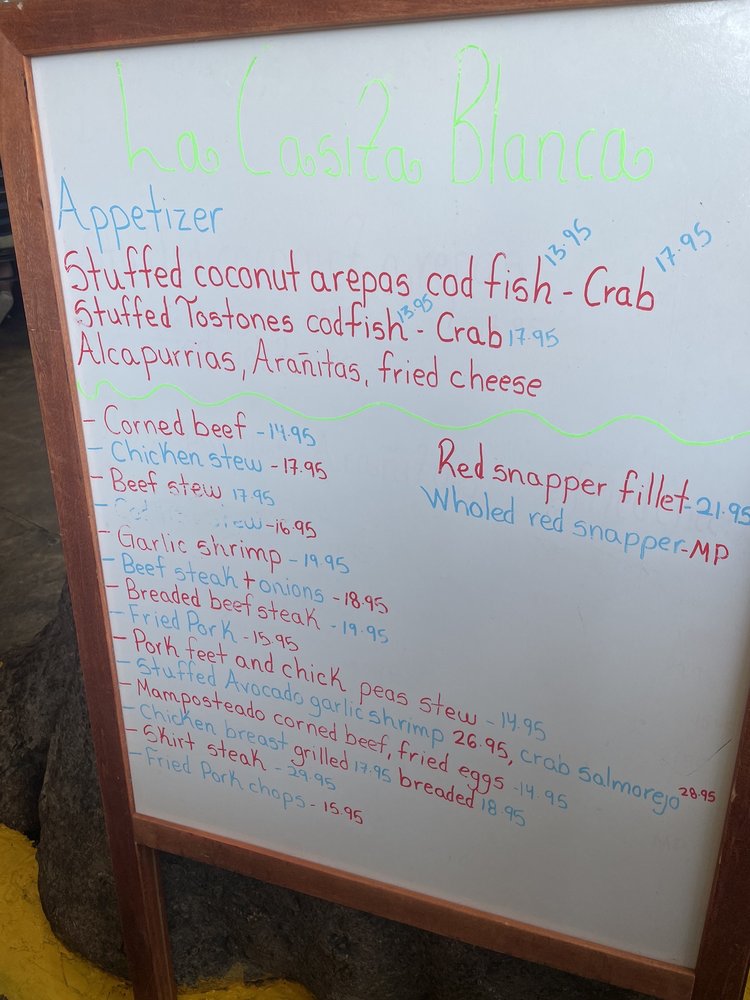 La Casita Blanca
Appetizer
Stuffed coconut arepas cod fish 13.95 - Crab 17.95
Stuffed Tostones codfish 13.95 - Crab 17.95
Alcapurrias, Arañitas, fried cheese
- Corned beef - 14.95
- Chicken stew - 17.95
- Beef stew 17.95
- stew - 16.95
- Garlic shrimp - 19.95
- Beef steak + onions - 18.95
- Breaded beef steak - 19.95
- Fried Pork - 15.95
- Pork feet and chick peas stew - 14.95
- Stuffed Avocado garlic shrimp 26.95, crab salmorejo 28.95
- Mamposteado corned beef, fried eggs - 14.95
- Chicken breast grilled 17.95 breaded 18.95
- Skirt steak - 29.95
- Fried Pork chops - 15.95
Red snapper fillet - 21.95
Wholed red snapper - MP